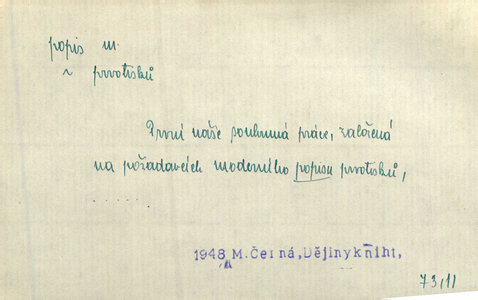 popis m.
~ prvotisků
První naše souhrnná práce, založená
na požadavcích moderního popisu prvotisků,
.......
1948 M.Černá,Dějiny kniht,
73,11